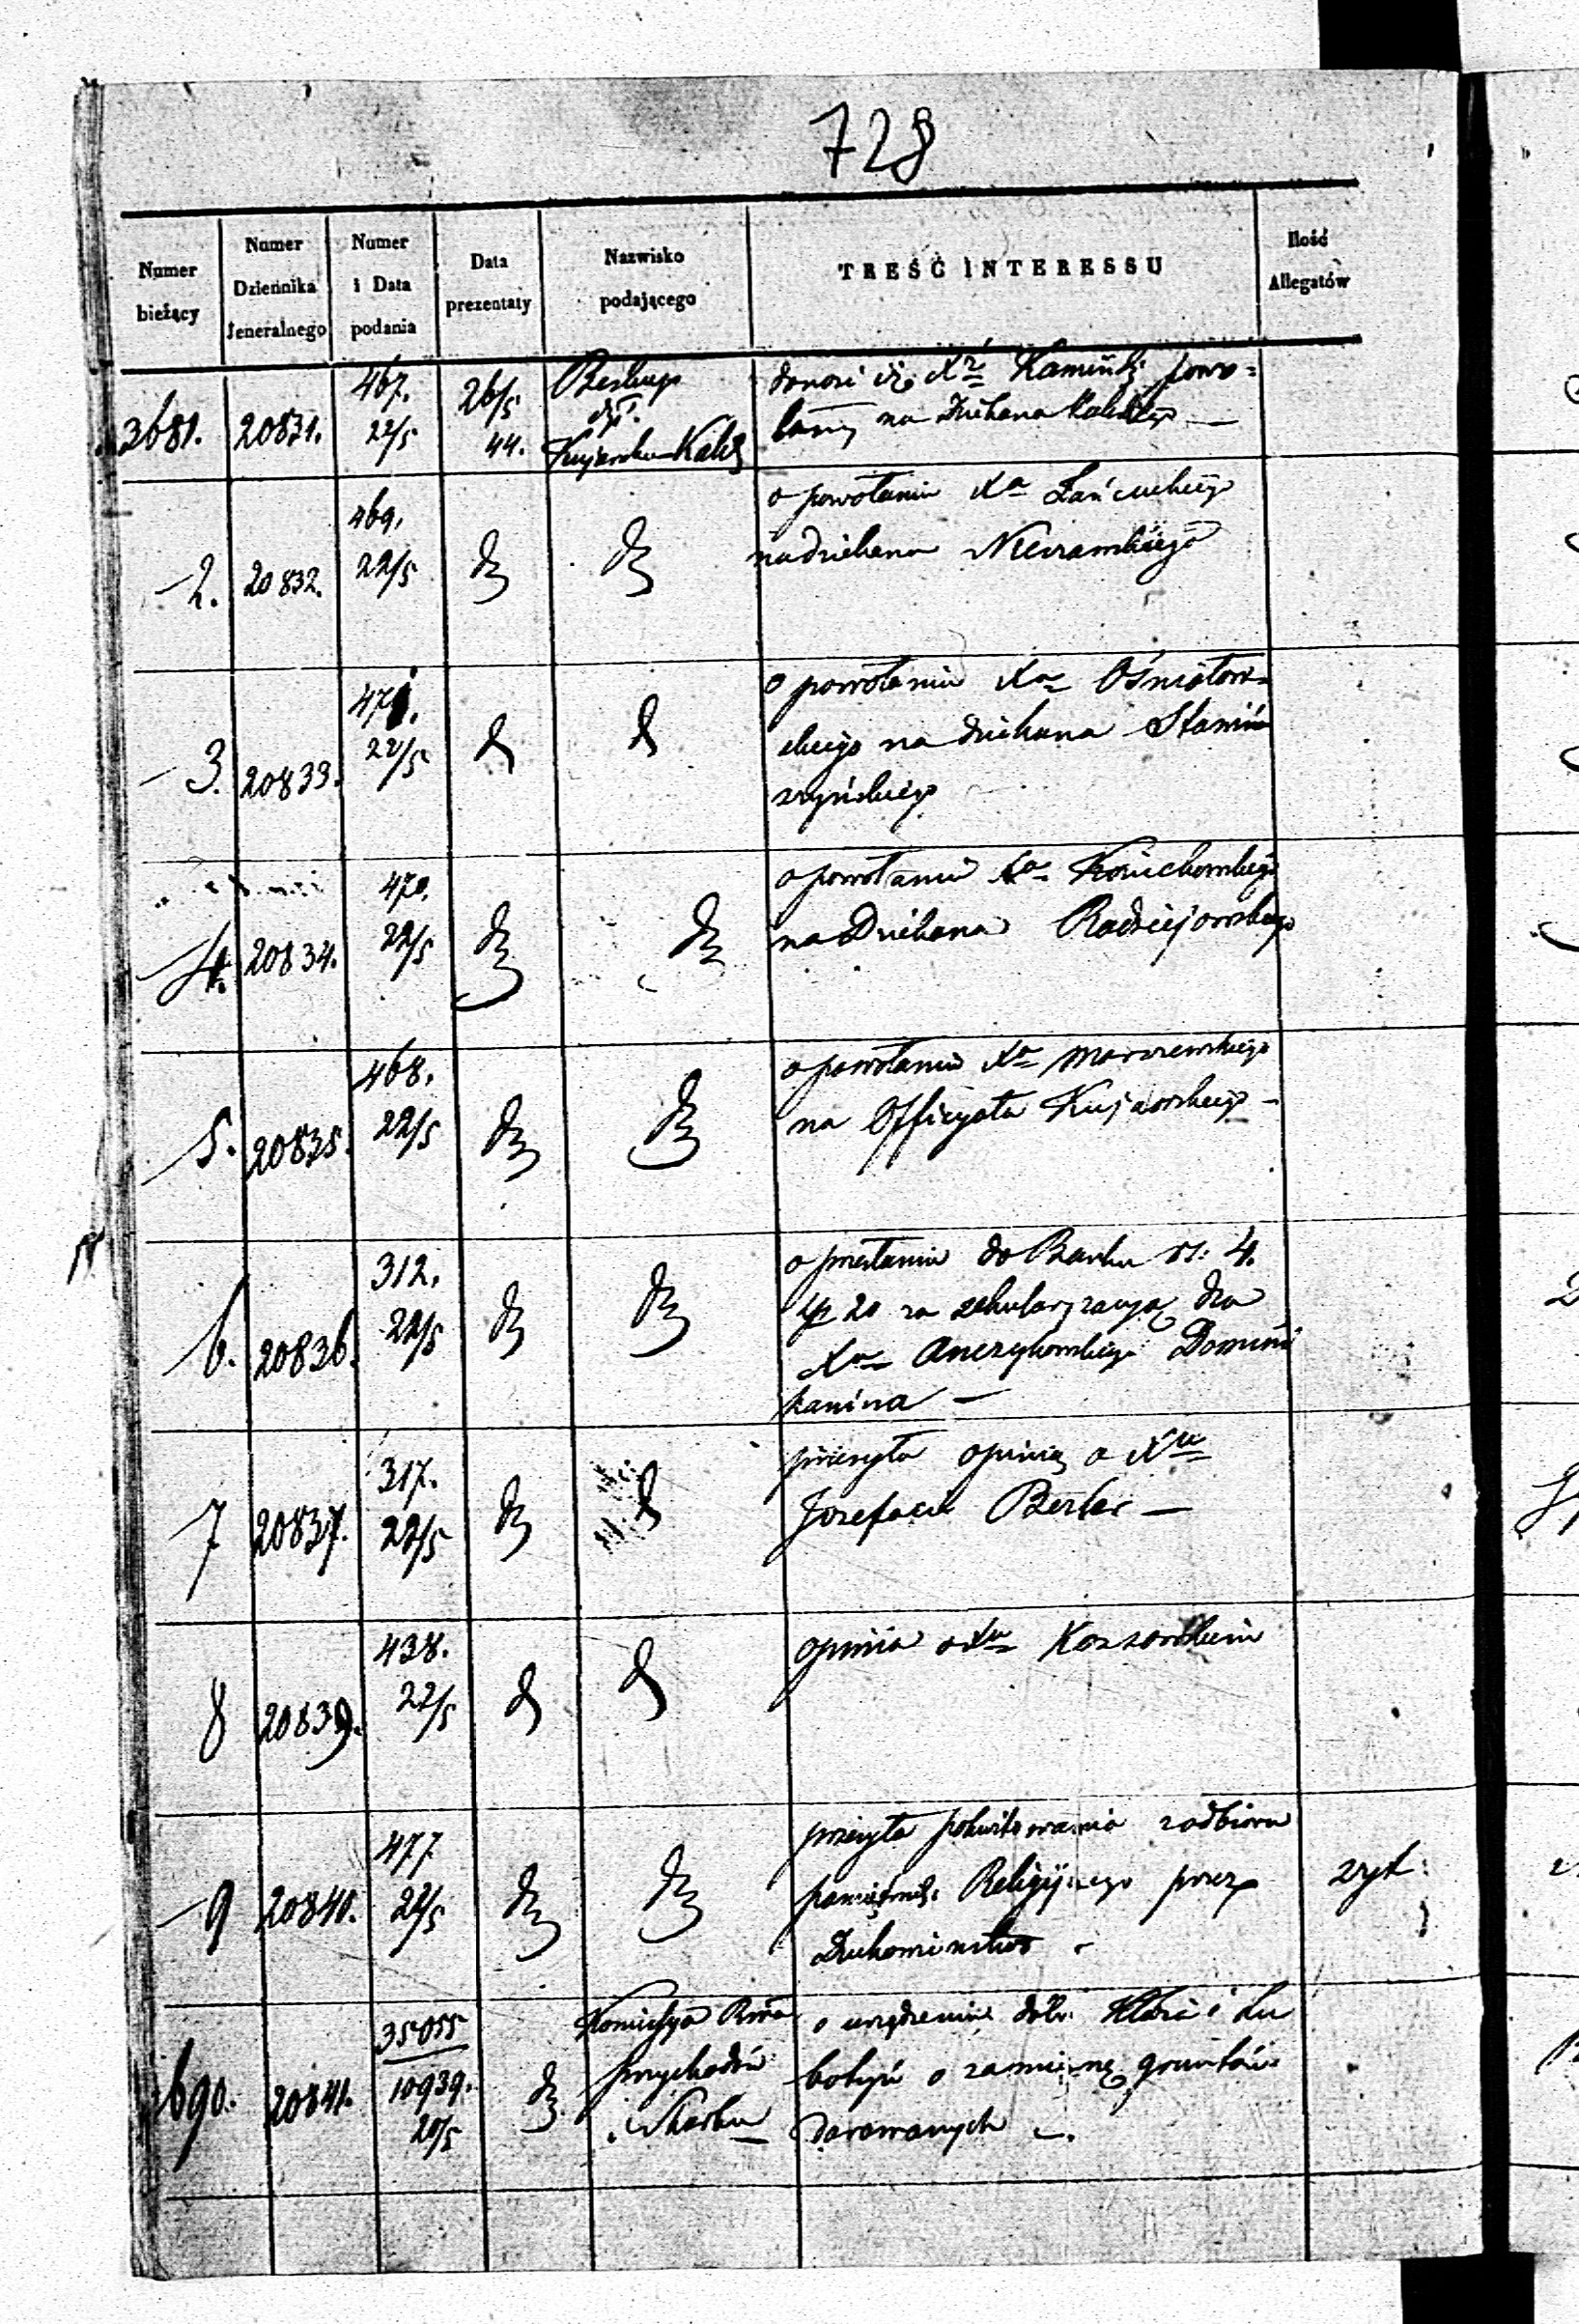 728
Numer bieżący
Numer Dziennika Jeneralnego
Numer i Data podania
Data prezentaty
Nazwisko podającego
TREŚĆ INTERESSU
Ilość Allegatów
3681. 20831. 467. 22/5 26/5 44. Kujawsko-Kalis
donosi iż Xdz Kamiński powo=
łany na Dziekana
2. 20832. 469. 22/5 d d
o powołaniu Xa Łańcuckiego
na dziekana Nieszawskiego
3. 20833. 471. 22/5 d d
o powołaniu Xa Ośniałow=
skiego na dziekana
4. 20834. 470. 22/5 d d
o powołaniu Xa Kosichowskiego
na Dziekana Radziejowskiego
5. 20835. 468. 22/5 d d
o powołaniu Xa Morszewskiego
na Officyała Kujawskiego –
6. 20836. 312. 22/5 d d
o przesłaniu do Banku rs: 4.
20 za sekularyzacyą dla
Xa Anczykowskiego Domini
kanina —
7 20837. 317. 22/5 d d
przesyła opinią o Xu
Jozefacie —
8 20839. 438. 22/5 d d
opinia o Xu Kossowskim
9 20840. 477 22/5 d d
przesyła pokwitowania z odbioru
pamiętnik: Religijnego przez
Duchowieństwo – zeszyt:
690. 20841. 35055 10939. 20/5 d
Komissya Rząd
Przychodów
i Skarbu
o urządzenie dóbr Kłoci i Lu
botyń o zamianę gruntów
darowanych –.